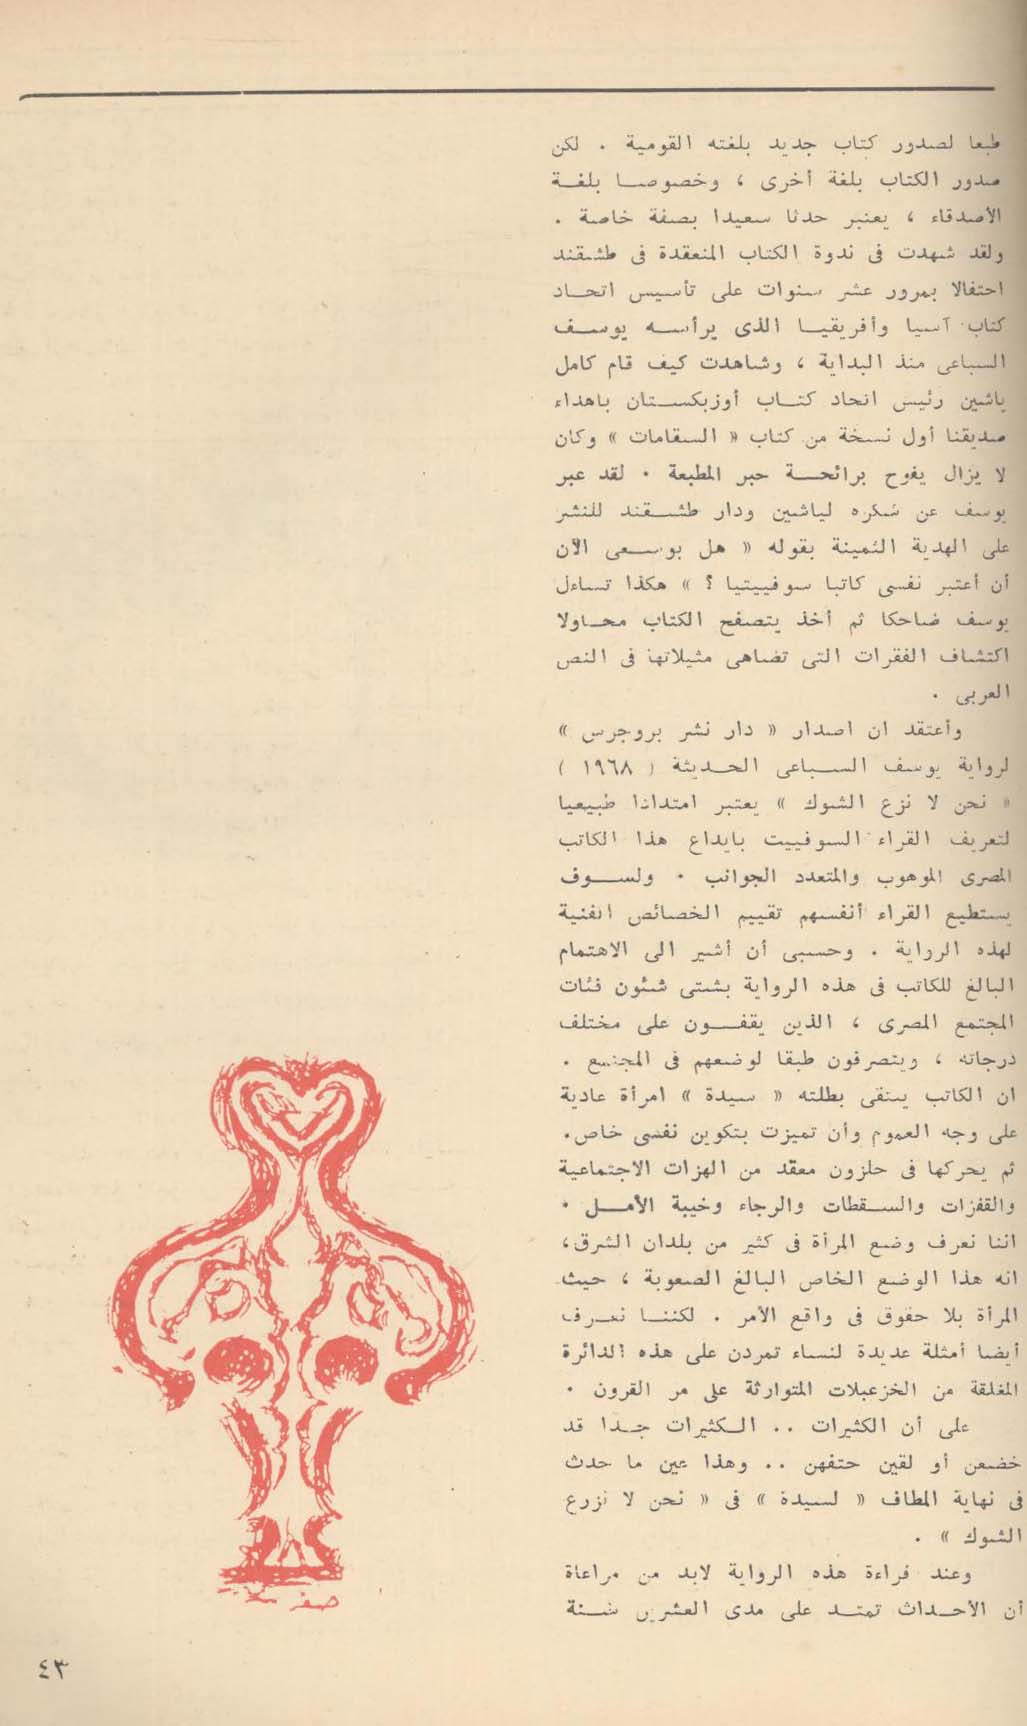 طبعا لصدور كتاب جديد بلغته القومية . لكن
صدور الكتاب بلغة أخرى ، وخصوصا بلغة
الأصدقاء ، يعتبر حدثا سعيدا بصفة خاصة .
ولقد شهدت فى ندوة الكتاب المنعقدة فى طشقند
احتفالا بمرور عشر سنوات على تأسيس اتحاد
كتاب آسيا وأفريقيا الذى يرأسه يوسف
السباعى منذ البداية ، وشاهدت كيف قام كامل
ياشين رئيس اتحاد كتاب أوزبكستان باهداء
صديقنا أول نسخة من كتاب « السقامات » وكان
لا يزال يفوح برائحة حبر المطبعة . لقد عبر
يوسف عن شكره لياشين ودار طشقند للنشر
على الهدية الثمينة بقوله « هل بوسعى الآن
أن أعتبر نفسى كاتبا سوفييتيا ؟ » هكذا تساءل
يوسف ضاحكا ثم أخذ يتصفح الكتاب محاولا
اكتشاف الفقرات التى تضاهى مثيلاتها فى النص
العربى .
وأعتقد ان اصدار « دار نشر بروجرس »
لرواية يوسف السباعى الحديثة ( ١٩٦٨ )
« نحن لا نزع الشوك » يعتبر امتدادا طبيعيا
لتعريف القراء السوفييت بابداع هذا الكاتب
المصرى الموهوب والمتعدد الجوانب . ولسوف
يستطيع القراء أنفسهم تقييم الخصائص الفنية
لهذه الرواية . وحسبى أن أشير الى الاهتمام
البالغ للكاتب فى هذه الرواية بشتى شئون فئات
المجتمع المصرى ، الذين يقفون على مختلف
درجاته ، ويتصرفون طبقا لوضعهم فى المجتمع .
ان الكاتب ينتقى بطلته « سيدة » امرأة عادية
على وجه العموم وأن تميزت بتكوين نفسى خاص.
ثم يحركها فى حلزون معقد من الهزات الاجتماعية
والقفزات والسقطات والرجاء وخيبة الأمل .
اننا نعرف وضع المرأة فى كثير من بلدان الشرق،
انه هذا الوضع الخاص البالغ الصعوبة ، حيث
المرأة بلا حقوق فى واقع الأمر . لكننا نعرف
أيضا أمثلة عديدة لنساء تمردن على هذه الدائرة
المغلقة من الخزعبلات المتوارثة على مر القرون .
على أن الكثيرات .. الكثيرات جدا قد
خضعن أو لقين حتفهن .. وهذا عين ما حدث
فى نهاية المطاف « لسيدة » فى « نحن لا نزرع
الشوك » .
وعند قراءة هذه الرواية لابد من مراعاة
أن الأحداث تمتد على مدى العشرين سنة
٤٣